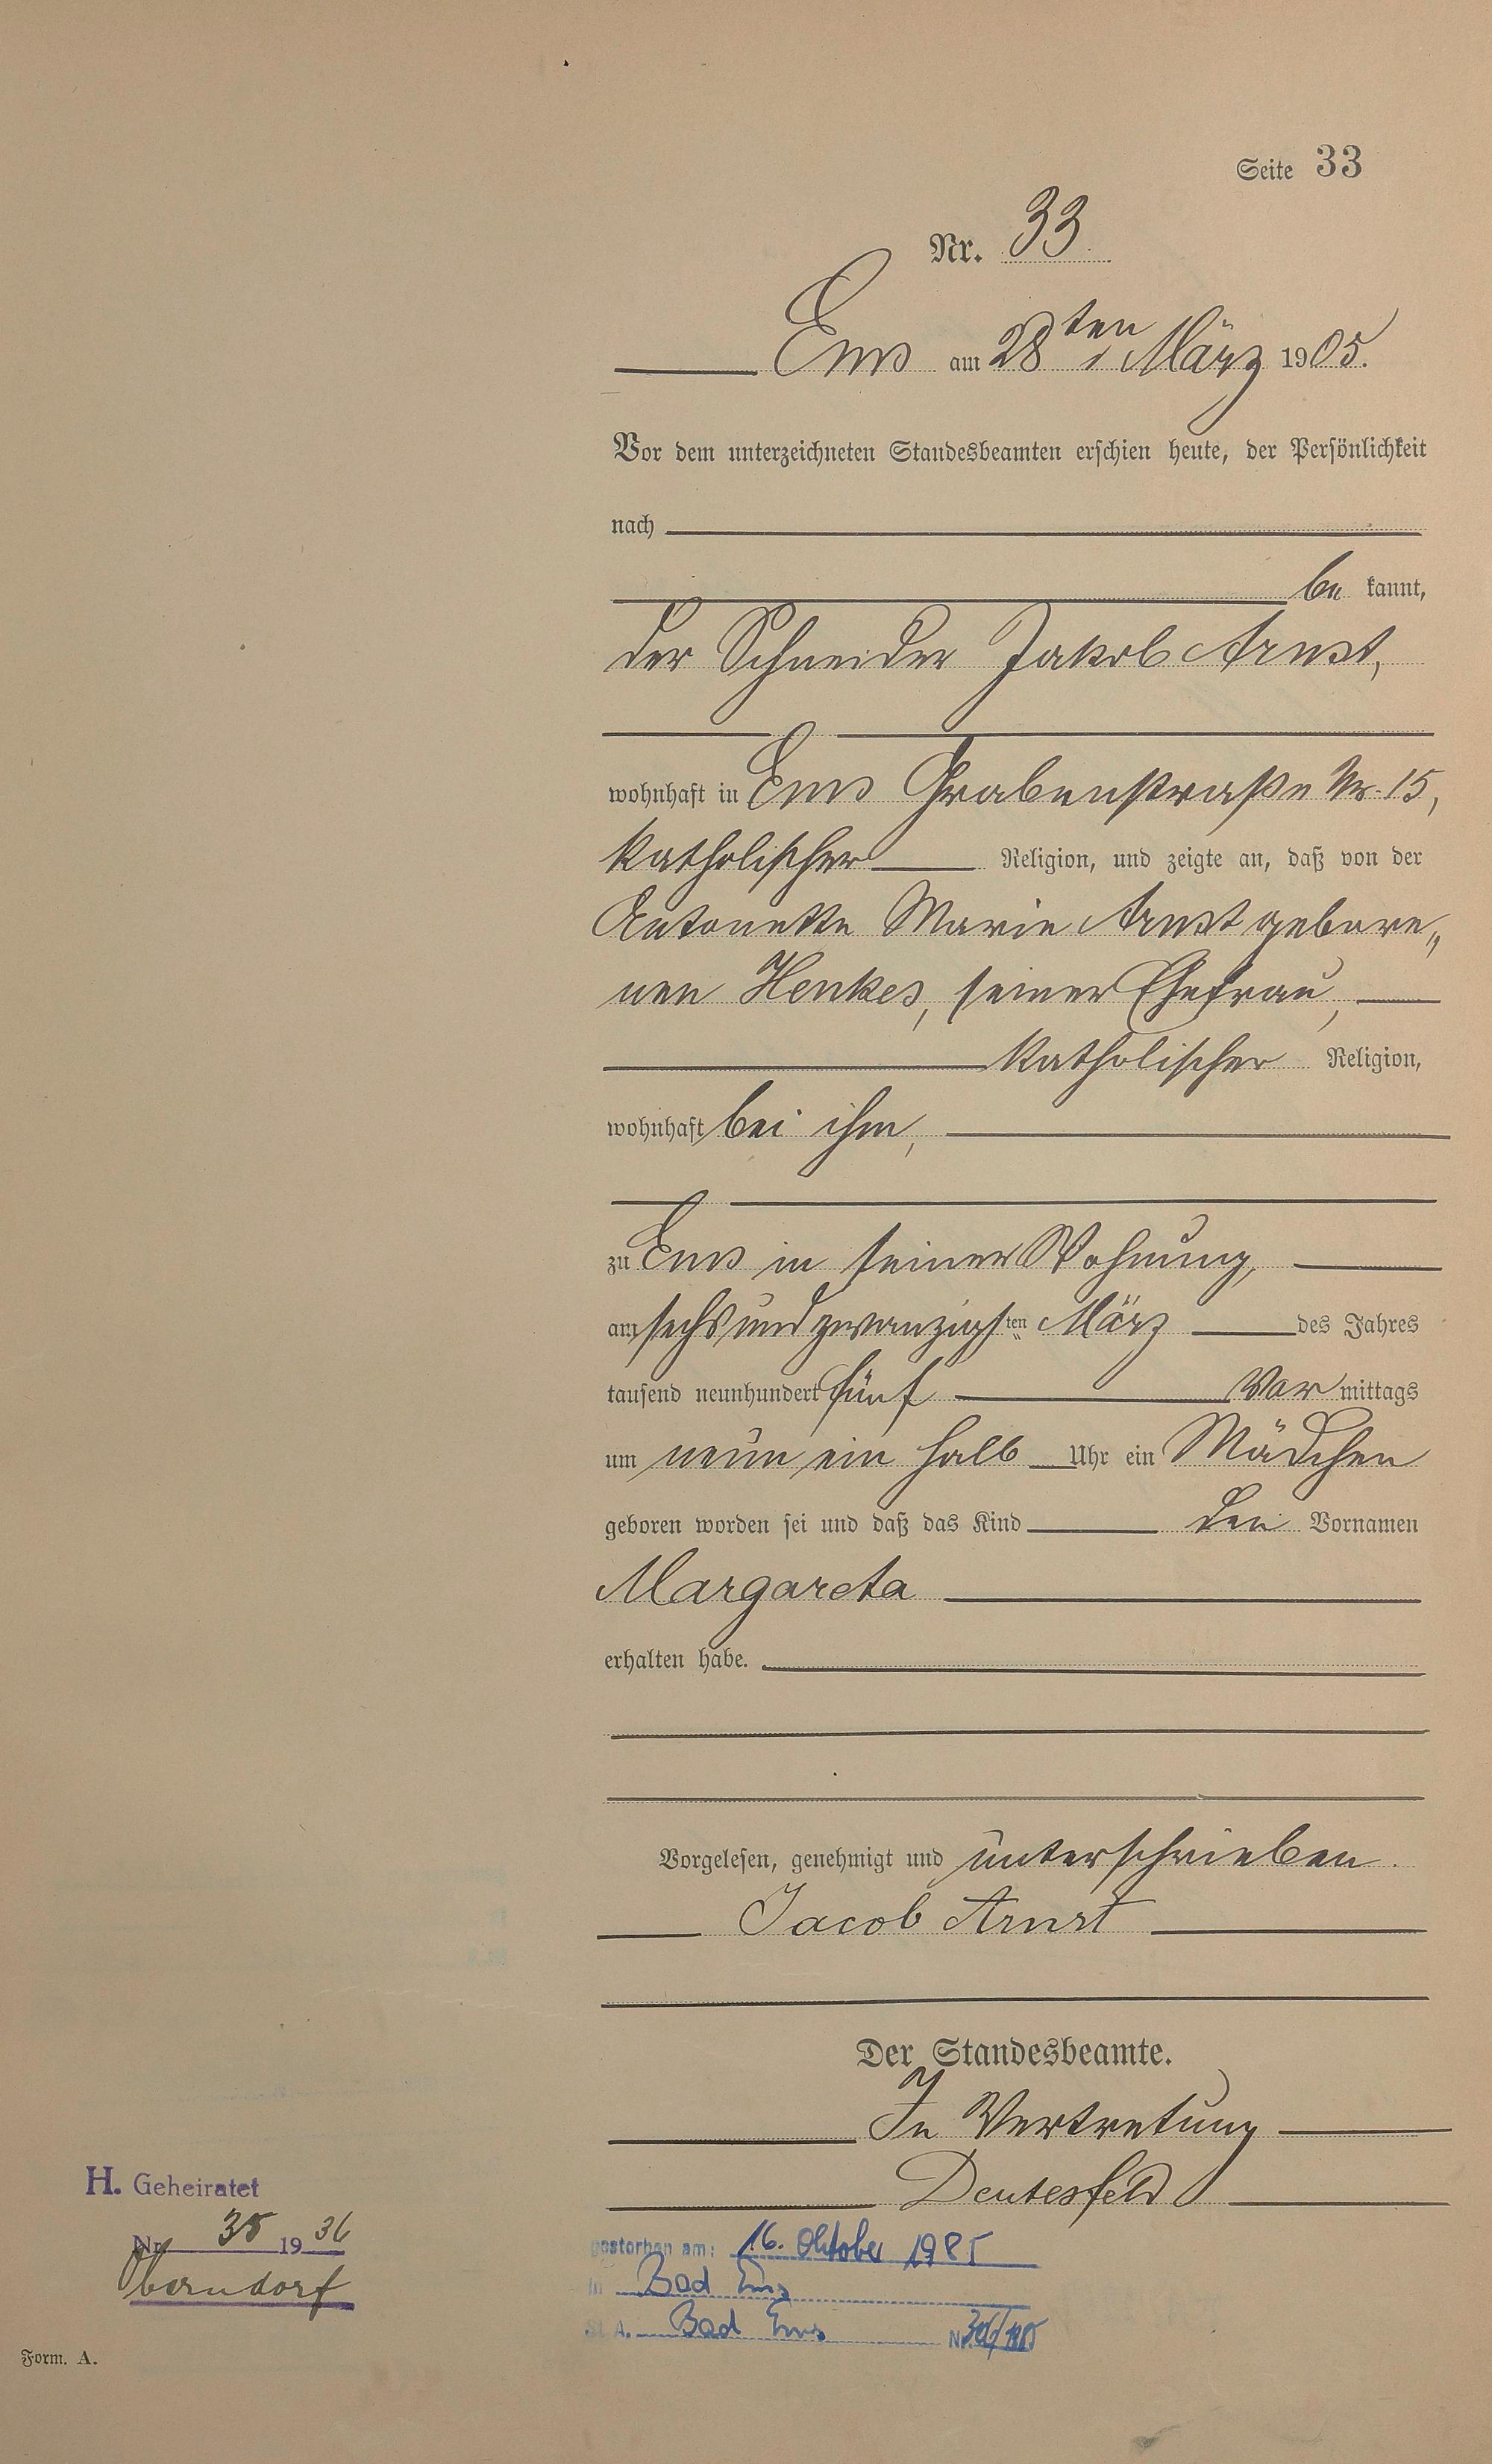 Seite 33
Nr. 33
Ems am 28ten März 1905.
Vor dem unterzeichneten Standesbeamten erschien heute, der Persönlichkeit
nach
be kannt,
der Schneider Jakob Arnst,
wohnhaft in Ems Grabenstraße Nr. 15,
katholischer Religion, und zeigte an, daß von der
Antonette Marie Arnst gebore„
nen Henkes, seiner Ehefrau,
katholischer Religion,
wohnhaft bei ihm,
zu Ems in seiner Wohnung,
am sechsundzwanzigsten März des Jahres
tausend neunhundert fünf Vor mittags
um neun ein halb Uhr ein Mädchen
geboren worden sei und daß das Kind den Vornamen
Margareta
erhalten habe.
Vorgelesen, genehmigt und unterschrieben.
Jacob Arnst
Der Standesbeamte.
In Vertretung
Deutesfeld
H. Geheiratet
Nr. 35 1936
Oberndorf
gestorben am: 16. Oktober 1985
in Bad Ems
St. A. Bad Ems Nr.
Form. A.